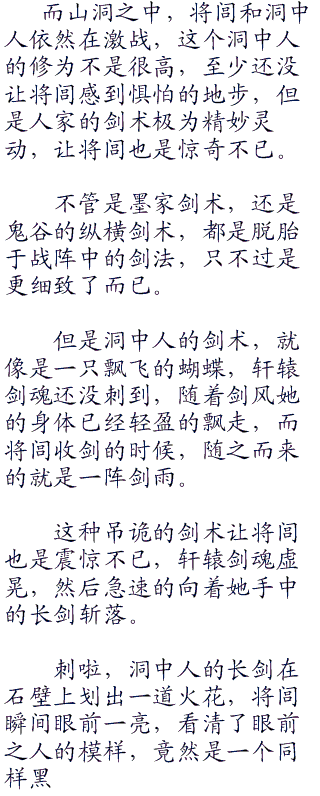 而山洞之中，将闾和洞中
人依然在激战，这个洞中人
的修为不是很高，至少还没
让将闾感到惧怕的地步，但
是人家的剑术极为精妙灵
动，让将闾也是惊奇不已。
不管是墨家剑术，还是
鬼谷的纵横剑术，都是脱胎
于战阵中的剑法，只不过是
更细致了而已。
但是洞中人的剑术，就
像是一只飘飞的蝴蝶，轩辕
剑魂还没刺到，随着剑风她
的身体已经轻盈的飘走，而
将闾收剑的时候，随之而来
的就是一阵剑雨。
这种吊诡的剑术让将闾
也是震惊不已，轩辕剑魂虚
晃，然后急速的向着她手中
的长剑斩落。
刺啦，洞中人的长剑在
石壁上划出一道火花，将闾
瞬间眼前一亮，看清了眼前
之人的模样，竟然是一个同
样黑